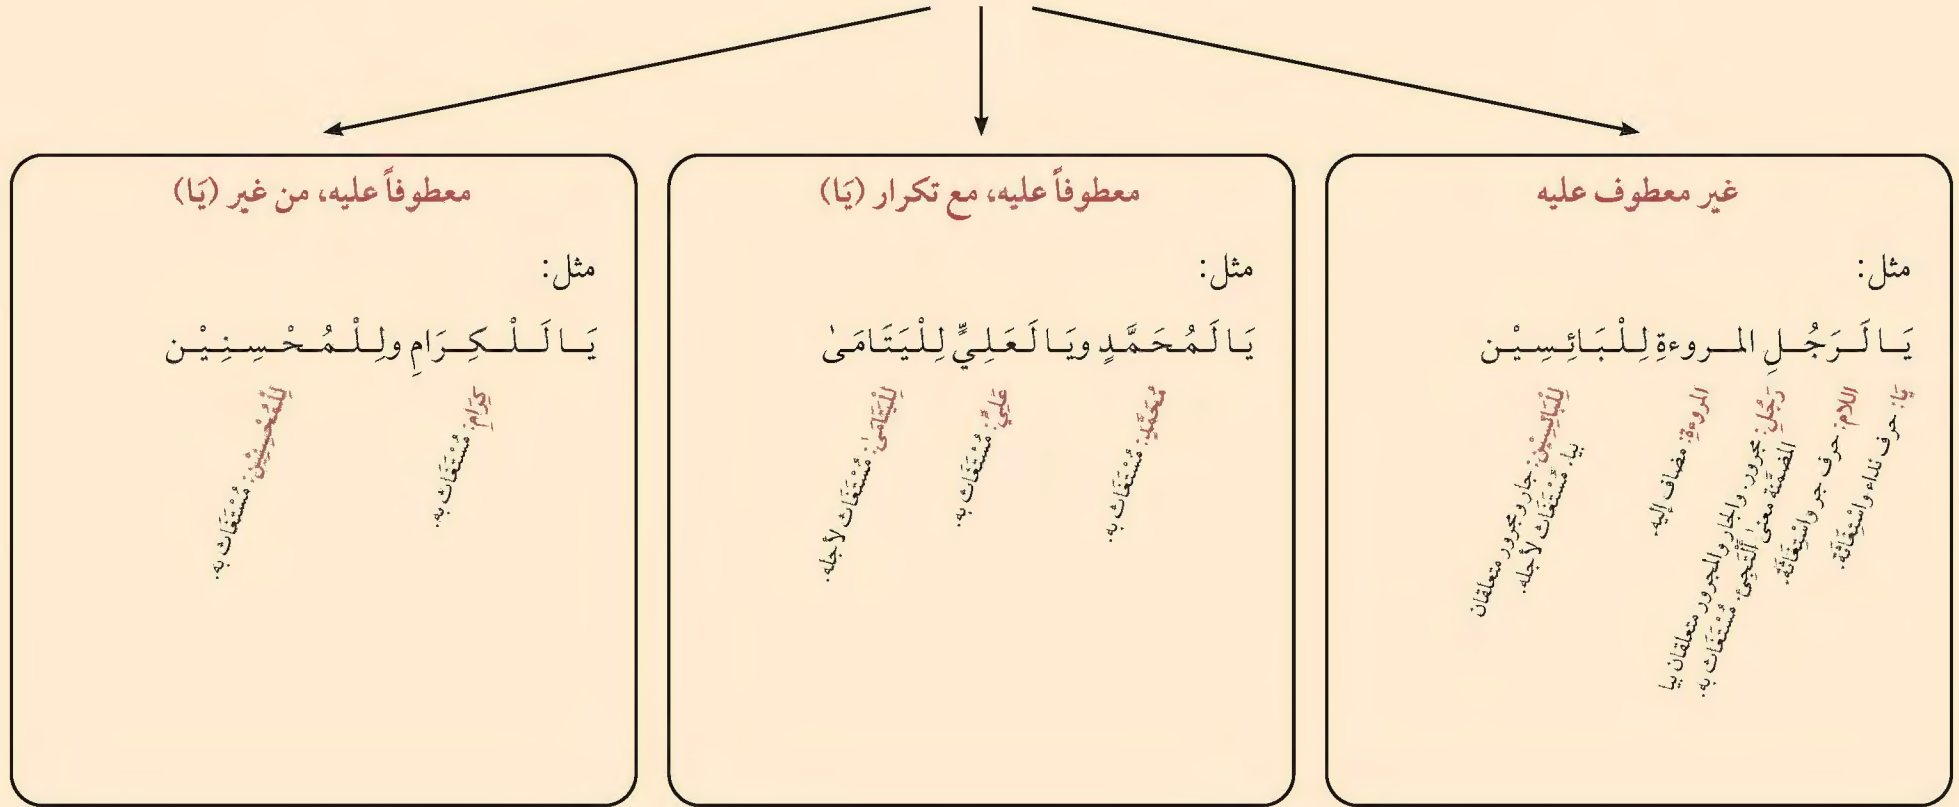 غير معطوف عليه
مثل:
يَـا لَـرَجُـلِ المـروءةِ لِـلْـبَـائِـسِـيْـن
يَا: حرف نداء واسْتِغَاثَة.
اللام: حرف جر واسْتِغَاثَة.
رَجُلِ: مجرور. والجار والمجرور متعلقان بيا
المضمَّنة معنىٰ أَلْتَجِئُ. مُسْتَغَاث به.
المروءةِ: مضاف إليه.
لِلْبَائِسِيْن: جار ومجرور متعلقان
بيا. مُسْتَغَاث لأجله.
معطوفاً عليه، مع تكرار (يَا)
مثل:
يَـا لَـمُـحَـمَّـدٍ ويَـا لَـعَـلِـيٍّ لِـلْـيَـتَـامَـىٰ
مُحَمَّدٍ: مُسْتَغَاث به.
عَلِيٍّ: مُسْتَغَاث به.
لِلْيَتَامَىٰ: مُسْتَغَاث لأجله.
معطوفاً عليه، من غير (يَا)
مثل:
يَـا لَـلْـكِـرَامِ ولِـلْـمُـحْـسِـنِـيْـن
كِرَامِ: مُسْتَغَاث به.
لِلْمُحْسِنِيْن: مُسْتَغَاث به.